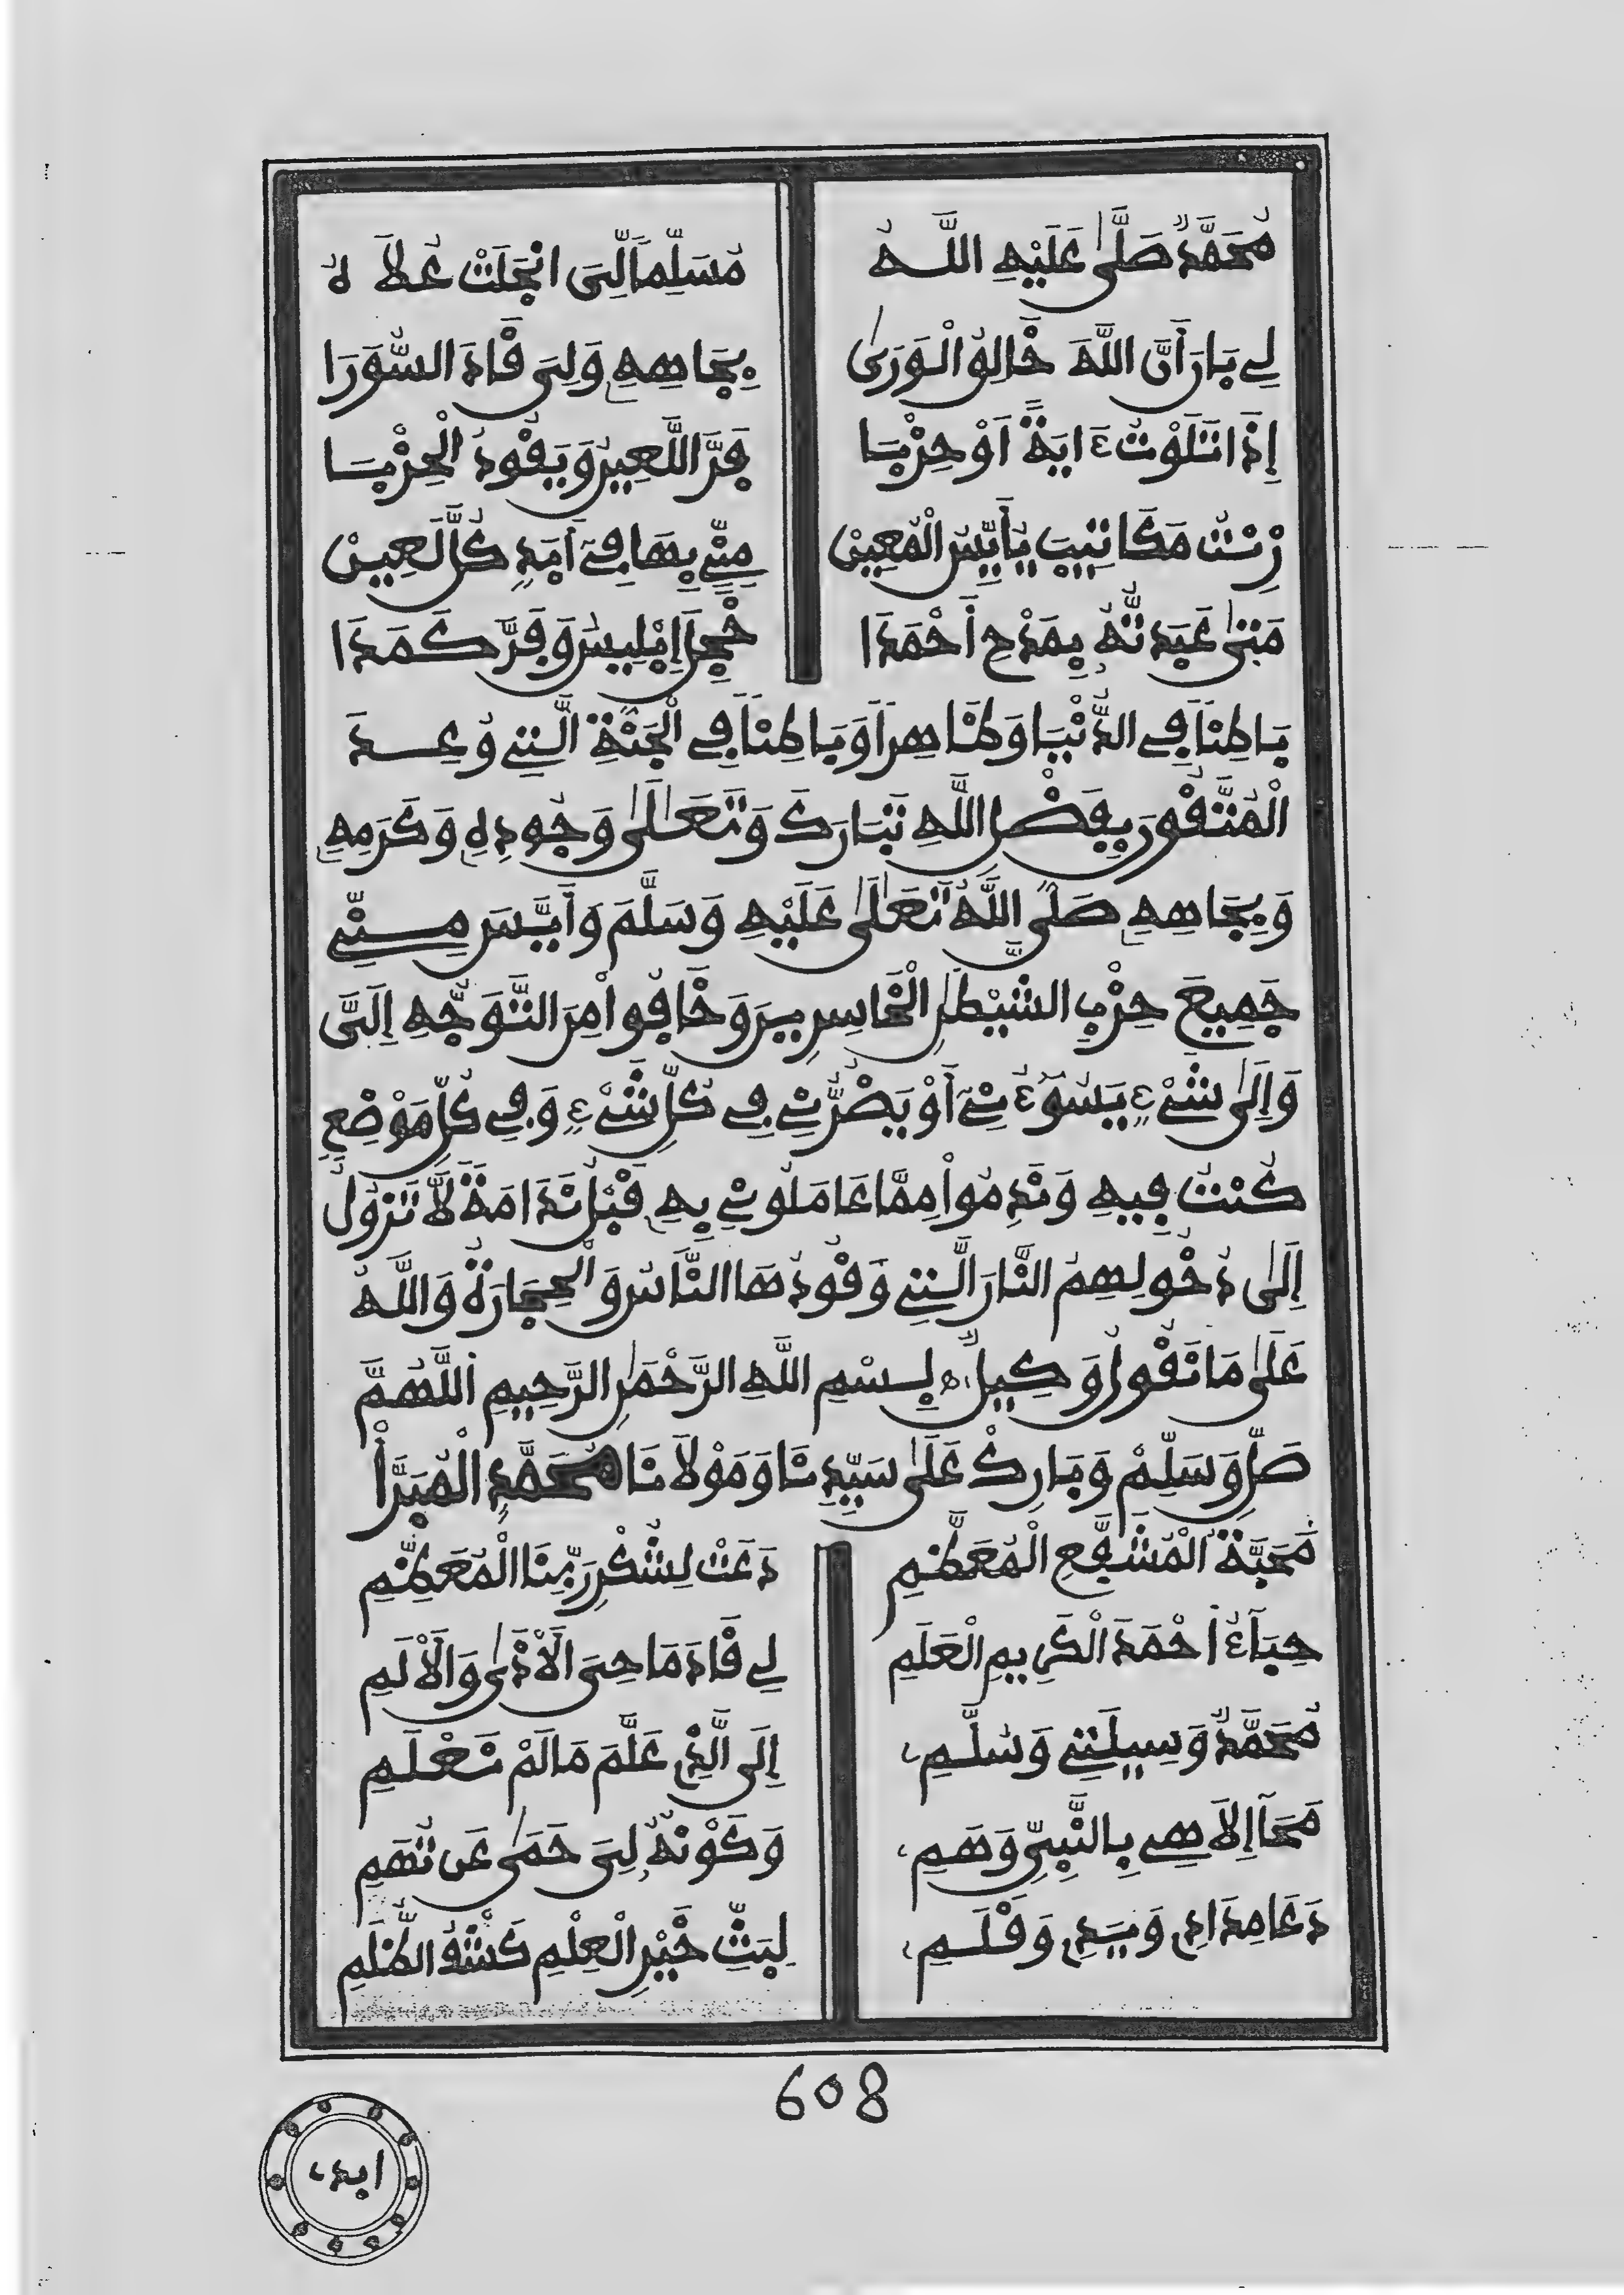 مُحَمَّدٌ صَلَّى عَلَيْهِ اللَّهُ مُسَلِّماً لِّيَ انْجَلَتْ عُلاَهُ
لِي بَارَ أَنَّ اللَّهَ خَالِقُ الْوَرَى بِجَاهِهِ وَلِيَ قَادَ السُّوَرَا
إِذَا تَلَوْتُ ءَايَةً اَوْ حِزْبَا فَرَّ اللَّعِينُ وَيَقُودُ الْحِزْبَا
زِنْتُ مَكَاتِيبَ يُأَيِّسُ الْمُعِينْ مِنِّي بِهَا فِي أَبَدٍ كُلَّ لَعِينْ
مَتَى عَبَدتُّهُ بِمَدْحِ أَحْمَدَا خَجِلَ إِبْلِيسُ وَفَرَّ كَمَدَا
بَاطِناً فِي الدُّنْيَا وَظَاهِراً وَبَاطِناً فِي الْجَنَّةِ الَّتِي وُعِدَ
الْمُتَّقُونَ بِفَضْلِ اللَّهِ تَبَارَكَ وَتَعَالَى وَجُودِهِ وَكَرَمِهِ
وَبِجَاهِهِ صَلَّى اللَّهُ تَعَالَى عَلَيْهِ وَسَلَّمَ وَأَيَّسَ مِنِّي
جَمِيعَ حِزْبِ الشَّيْطَنِ الْخَاسِرِينَ وَخَافُوا مِنَ التَّوَجُّهِ إِلَيَّ
وَإِلَى شَيْءٍ يَسُوءُنِي أَوْ يَضُرُّنِي فِي كُلِّ شَيْءٍ وَفِي كُلِّ مَوْضِعٍ
كُنْتُ فِيهِ وَنَدِمُوا مِمَّا عَامَلُونِي بِهِ قَبْلُ نَدَامَةً لاَّ تَزُولُ
إِلَى دُخُولِهِمُ النَّارَ الَّتِي وَقُودُهَا النَّاسُ وَالْحِجَارَةُ وَاللَّهُ
عَلَى مَا نَقُولُ وَكِيلٌ بِسْمِ اللَّهِ الرَّحْمَنِ الرَّحِيمِ اللَّهُمَّ
صَلِّ وَسَلِّمْ وَبَارِكْ عَلَى سَيِّدِنَا وَمَوْلاَنَا مُحَمَّدٍ الْمُبَرَّأْ
مَحَبَّةُ الْمُشَفَّعِ الْمُعَظَّمِ دَعَتْ لِشُكْرِ رَبِّنَا الْمُعَظَّمِ
حِبَاءُ أَحْمَدَ الْكَرِيمِ الْعَلَمِ لِي قَادَ مَاحِيَ الْأَذَى وَالْأَلَمِ
مُحَمَّدٌ وَسِيلَتِي وَسُلَّمِ إِلَى الَّذِي عَلَّمَ مَا لَمْ نَعْلَمِ
مَحَا إِلاَهِي بِالنَّبِيِّ وَهَمِ وَكَوْنُهُ لِيَ حَمَى عَن تُهَمِ
دَعَا مِدَادِي وَيَدِي وَقَلَمِ لِبَثِّ خَيْرِ الْعِلْمِ كَشْفُ الظُّلَمِ
608